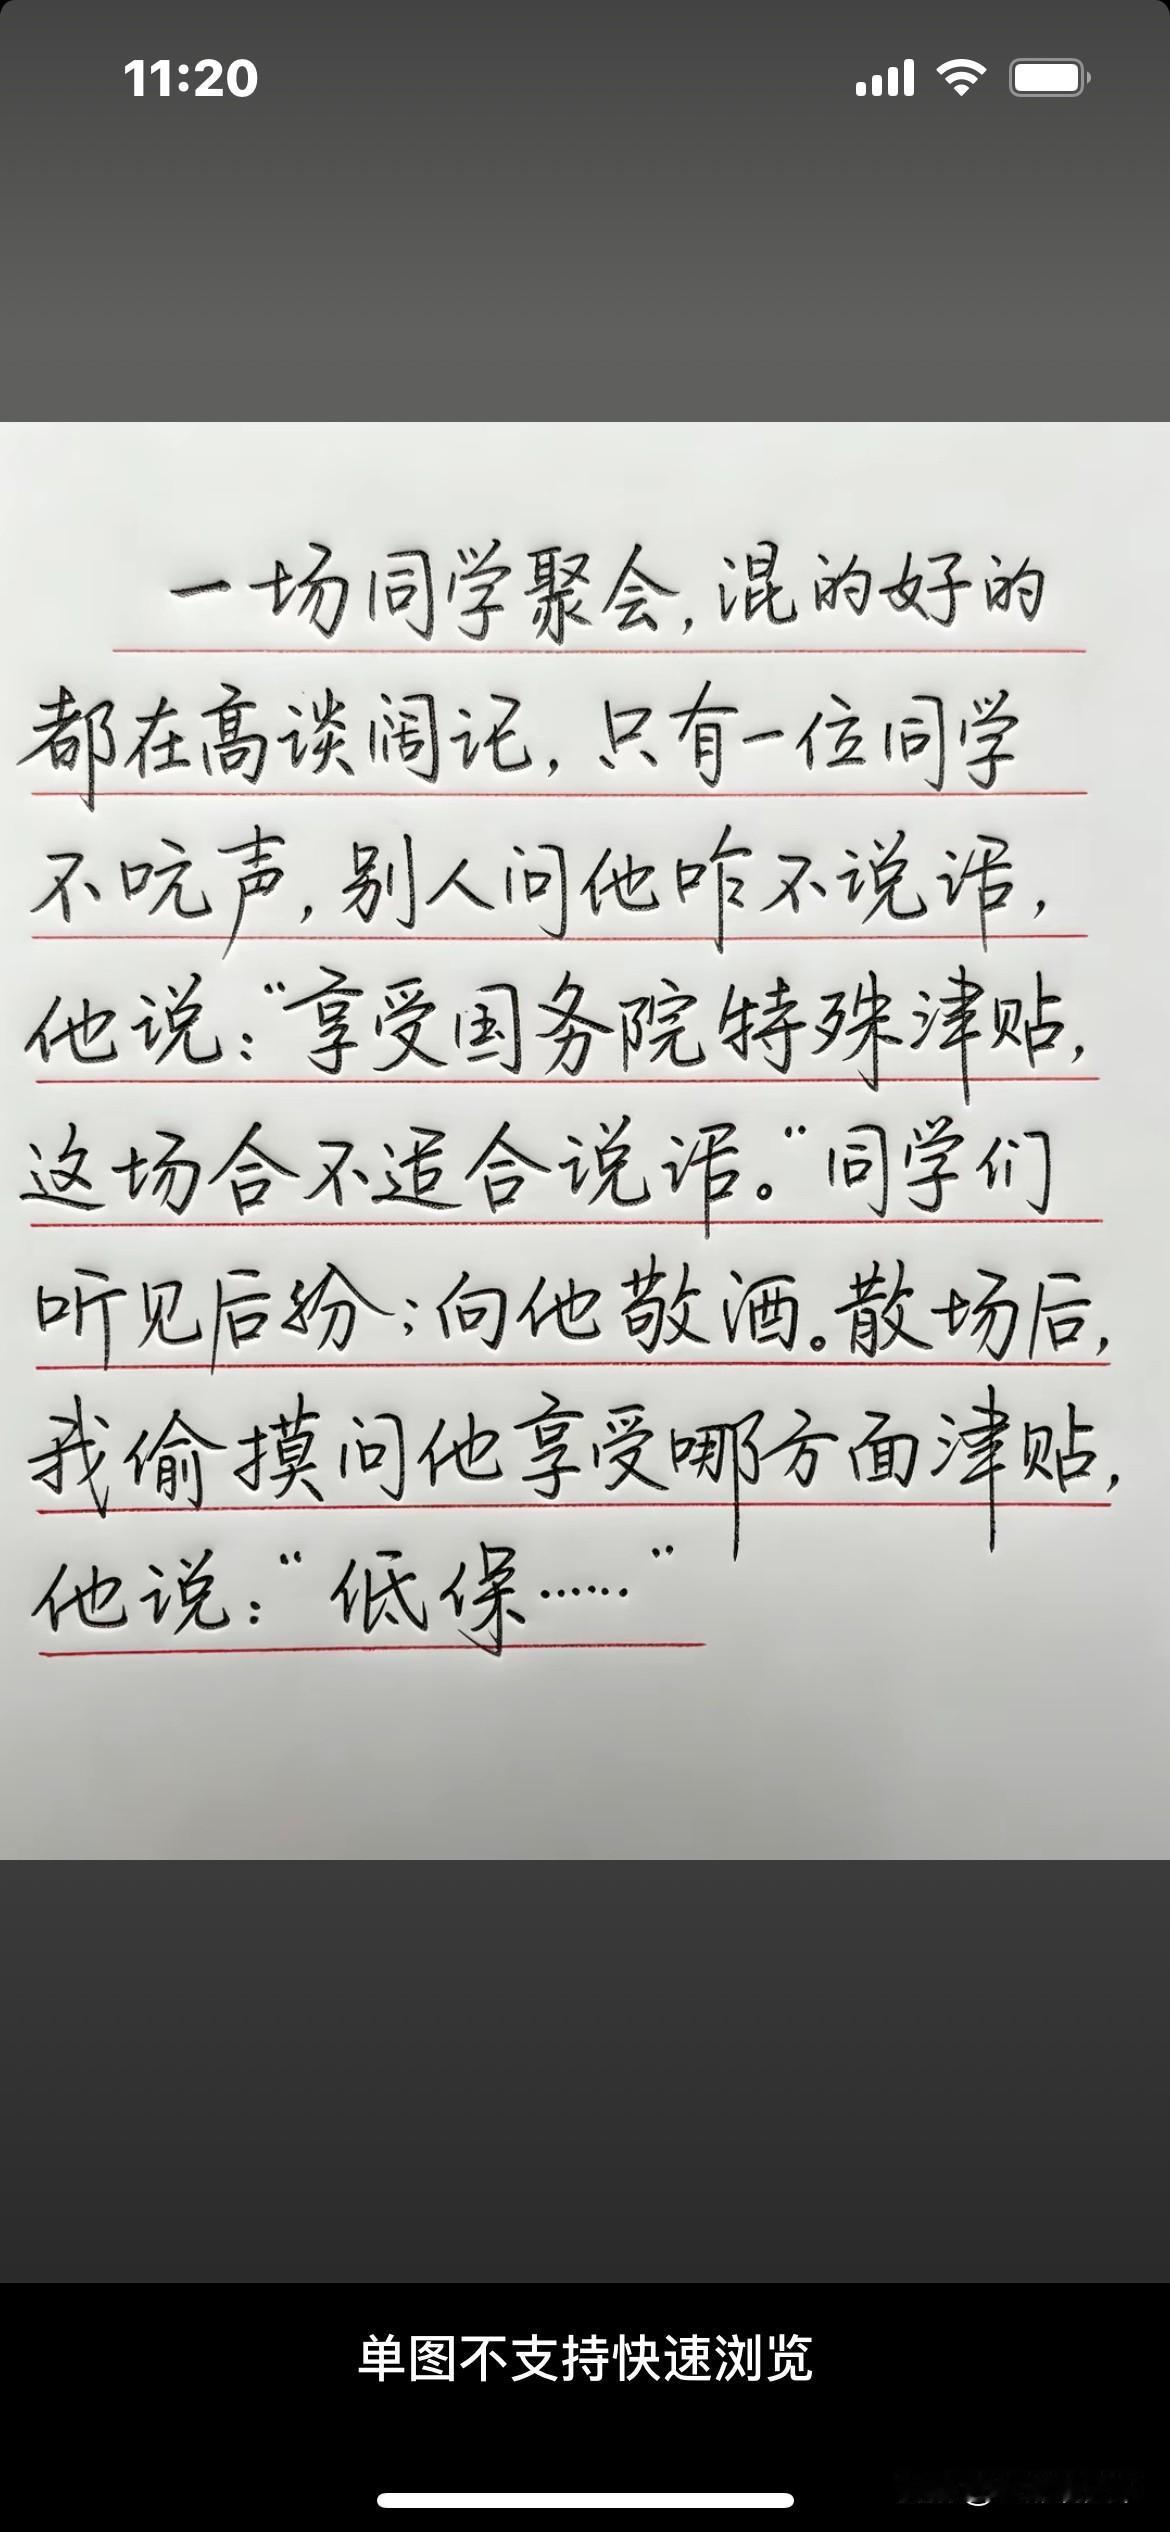 11:20
一场同学聚会,混的好的
都在高谈阔论,只有一位同学
不吭声,别人问他咋不说话,
他说:“享受国务院特殊津贴,
这场合不适合说话。”同学们
听见后纷纷向他敬酒。散场后,
我偷摸问他享受哪方面津贴,
他说:“低保……”
单图不支持快速浏览